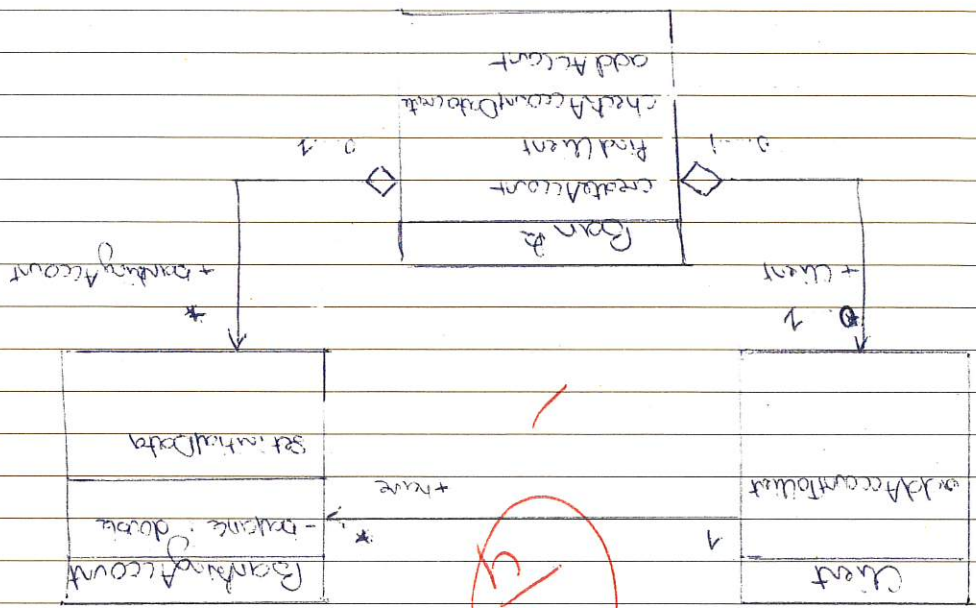 Client
addAccountToClient
1
*
+have
BankingAccount
- balance : double
setInitialData
0..1
+ Client
*
+ bankingAccount
Bank
createAccount
findClient
checkAccountDataLimite
addAccount
0..1
0..1